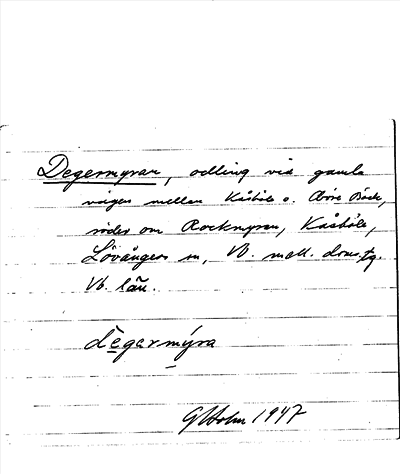 Degermyran, odling vid gamla
vägen mellan Kåsböle o. Böre Bäck,
söder om Rockmyran, Kåsböle,
Lövångers sn, Vb. mell. doms.tg.
Vb. län.
degermýra
G Holm 1947